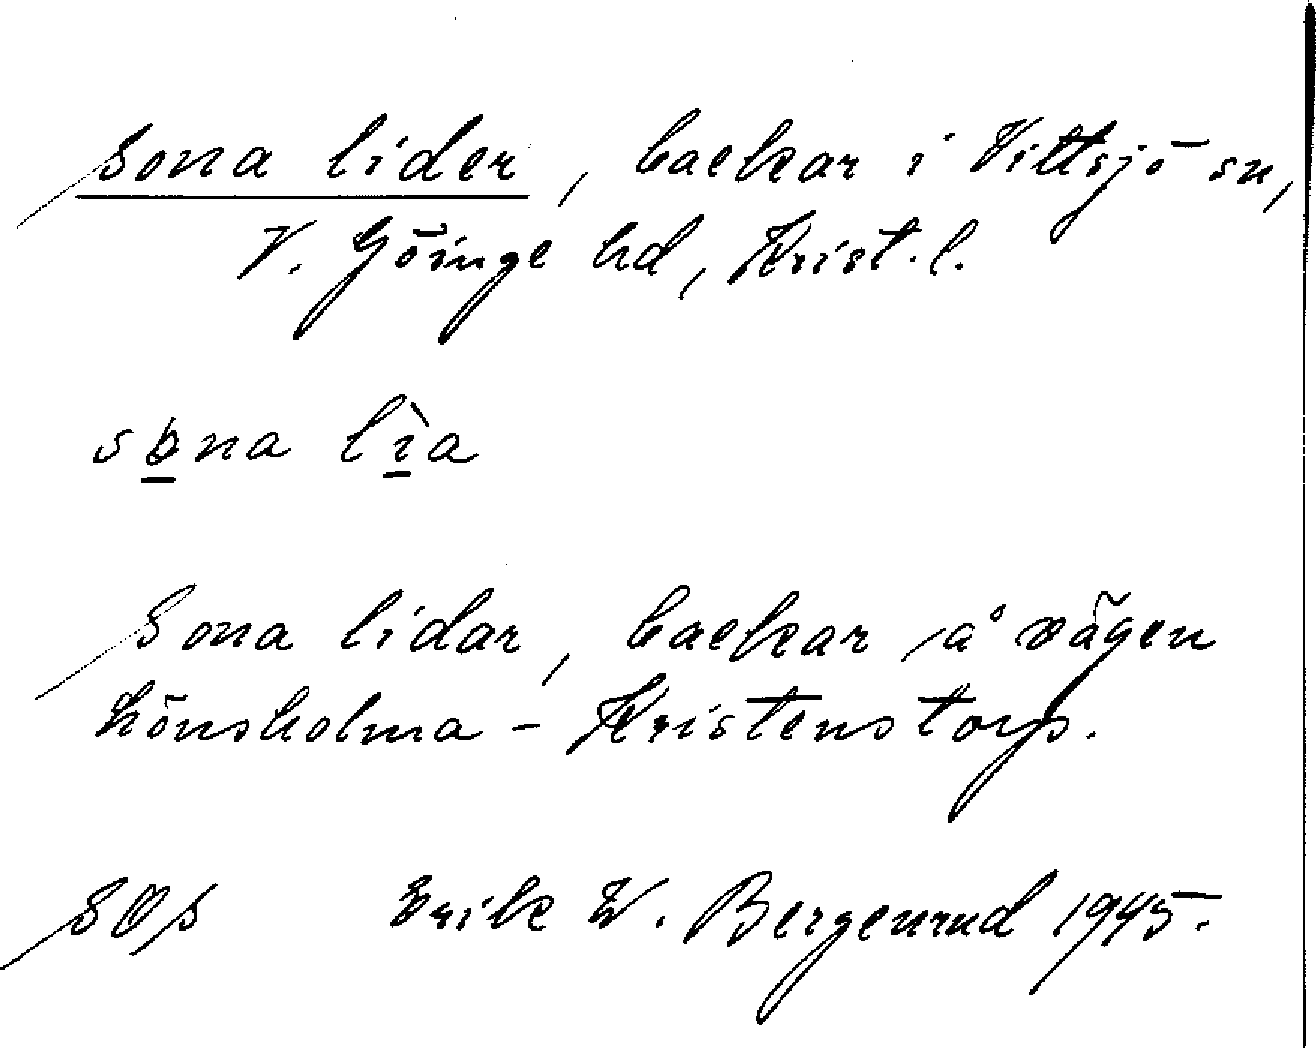 Sona lider, backar i Vittsjö sn,
V. Göinge hd, Krist. l.
sona lìa
Sona lidar, backar å vägen
hönsholma - Kristenstorp.
SOS Erik W. Bergenrud 1945.